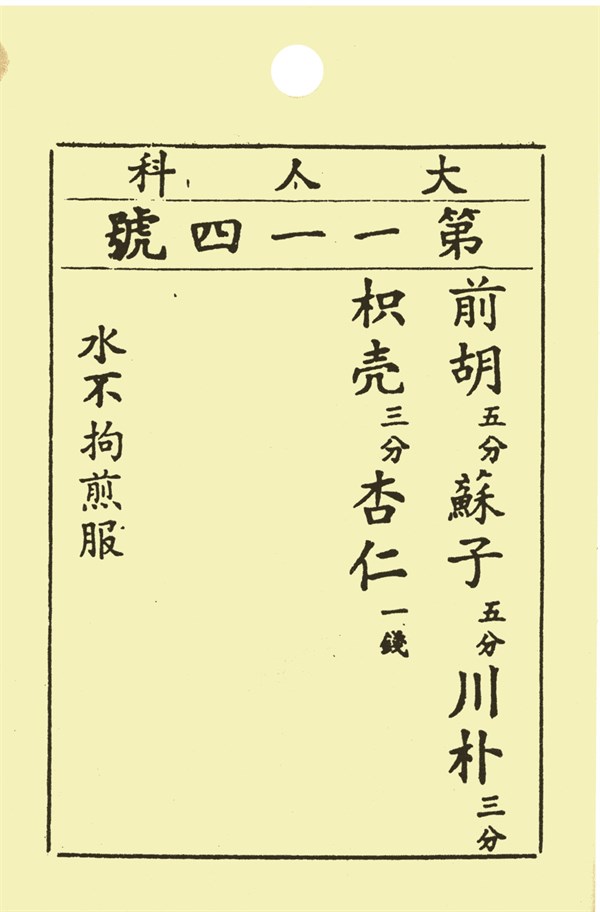 大人科
第一一四號
前胡五分蘇子五分川朴三分
枳壳三分杏仁一錢
水不拘煎服